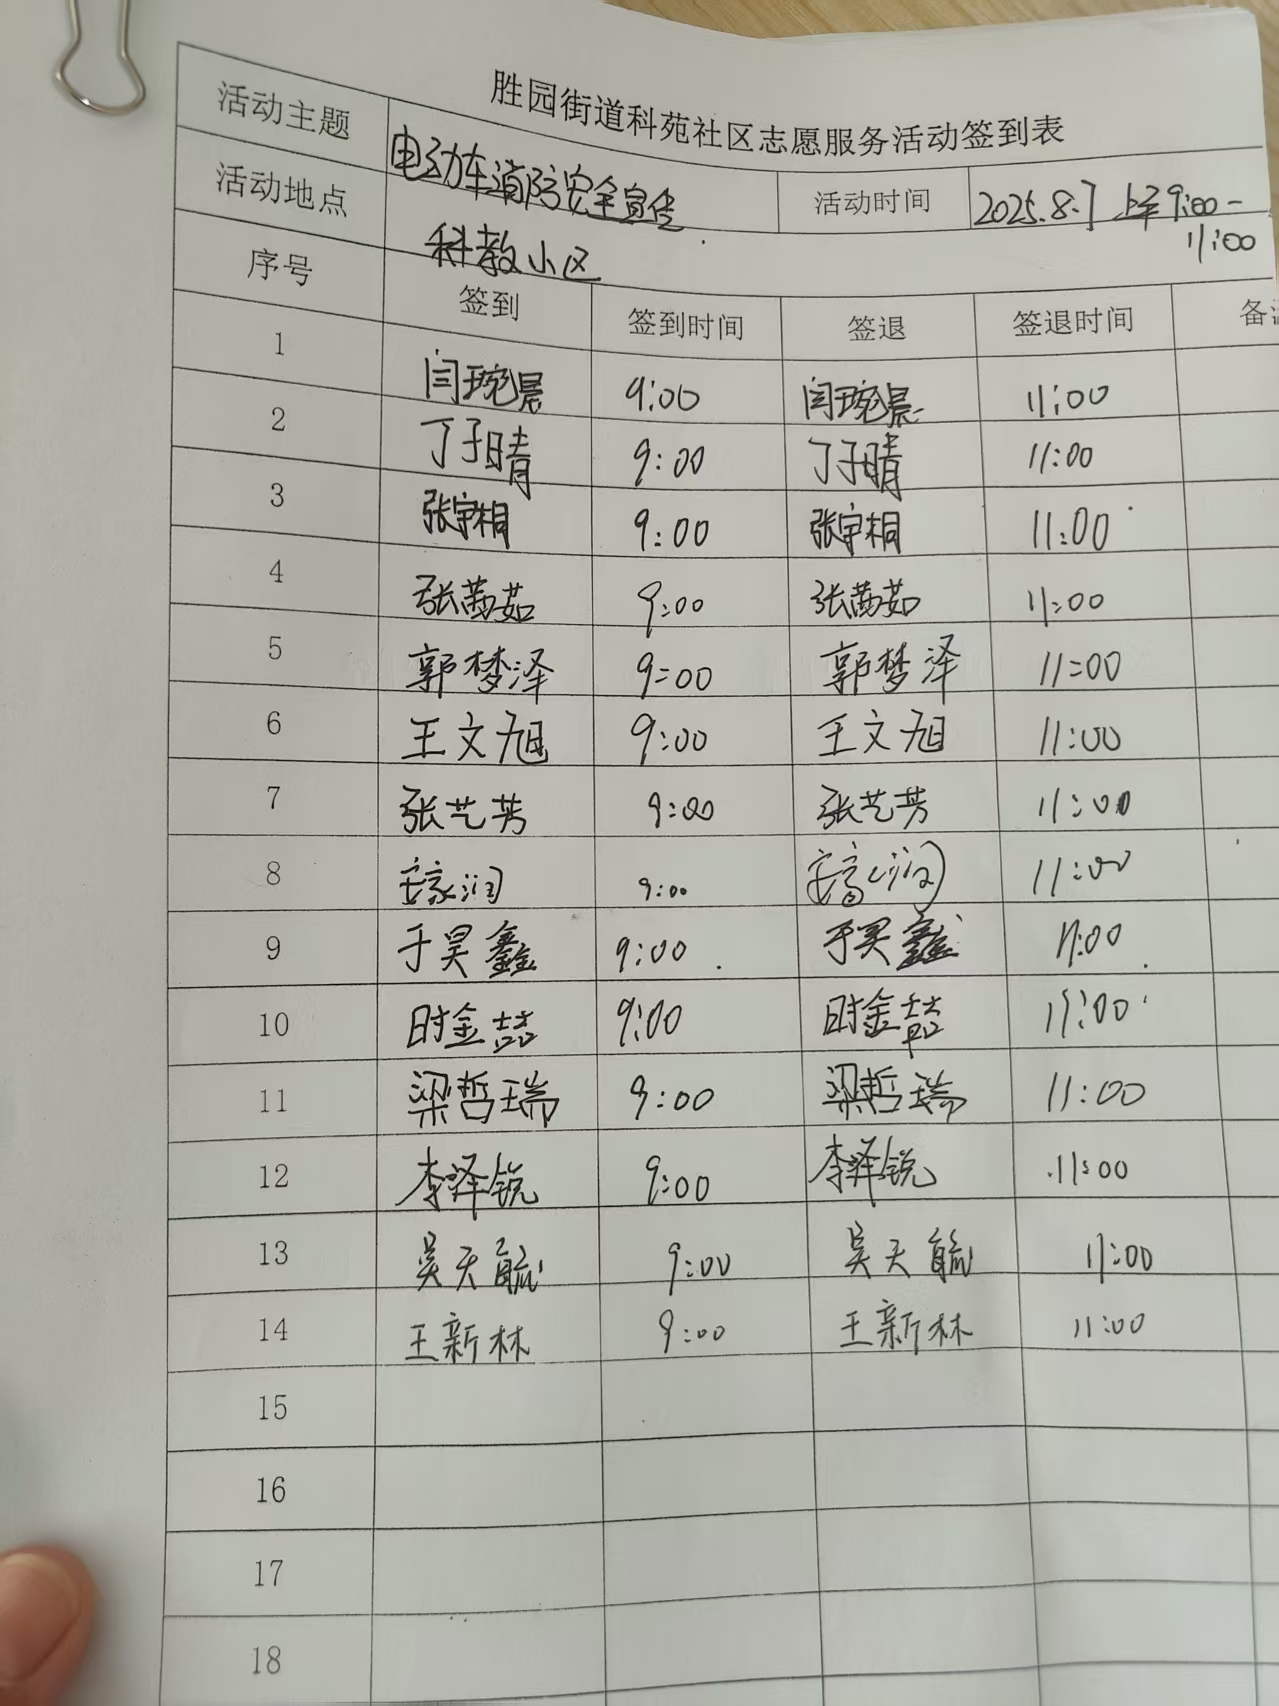 胜园街道科苑社区志愿服务活动签到表
活动主题 电动车消防安全宣传 活动时间 2025.8.7 上午9:00-11:00
活动地点 科教小区
序号 签到 签到时间 签退 签退时间 备
1 闫琬晨 9:00 闫琬晨 11:00
2 丁子晴 9:00 丁子晴 11:00
3 张宇桐 9:00 张宇桐 11:00
4 张茜茹 9:00 张茜茹 11:00
5 郭梦泽 9:00 郭梦泽 11:00
6 王文旭 9:00 王文旭 11:00
7 张艺芳 9:00 张艺芳 11:00
8 9:00 11:00
9 于昊鑫 9:00 于昊鑫 11:00
10 时金喆 9:00 时金喆 11:00
11 梁哲瑞 9:00 梁哲瑞 11:00
12 李泽锐 9:00 李泽锐 11:00
13 吴天毓 9:00 吴天毓 11:00
14 王新林 9:00 王新林 11:00
15
16
17
18